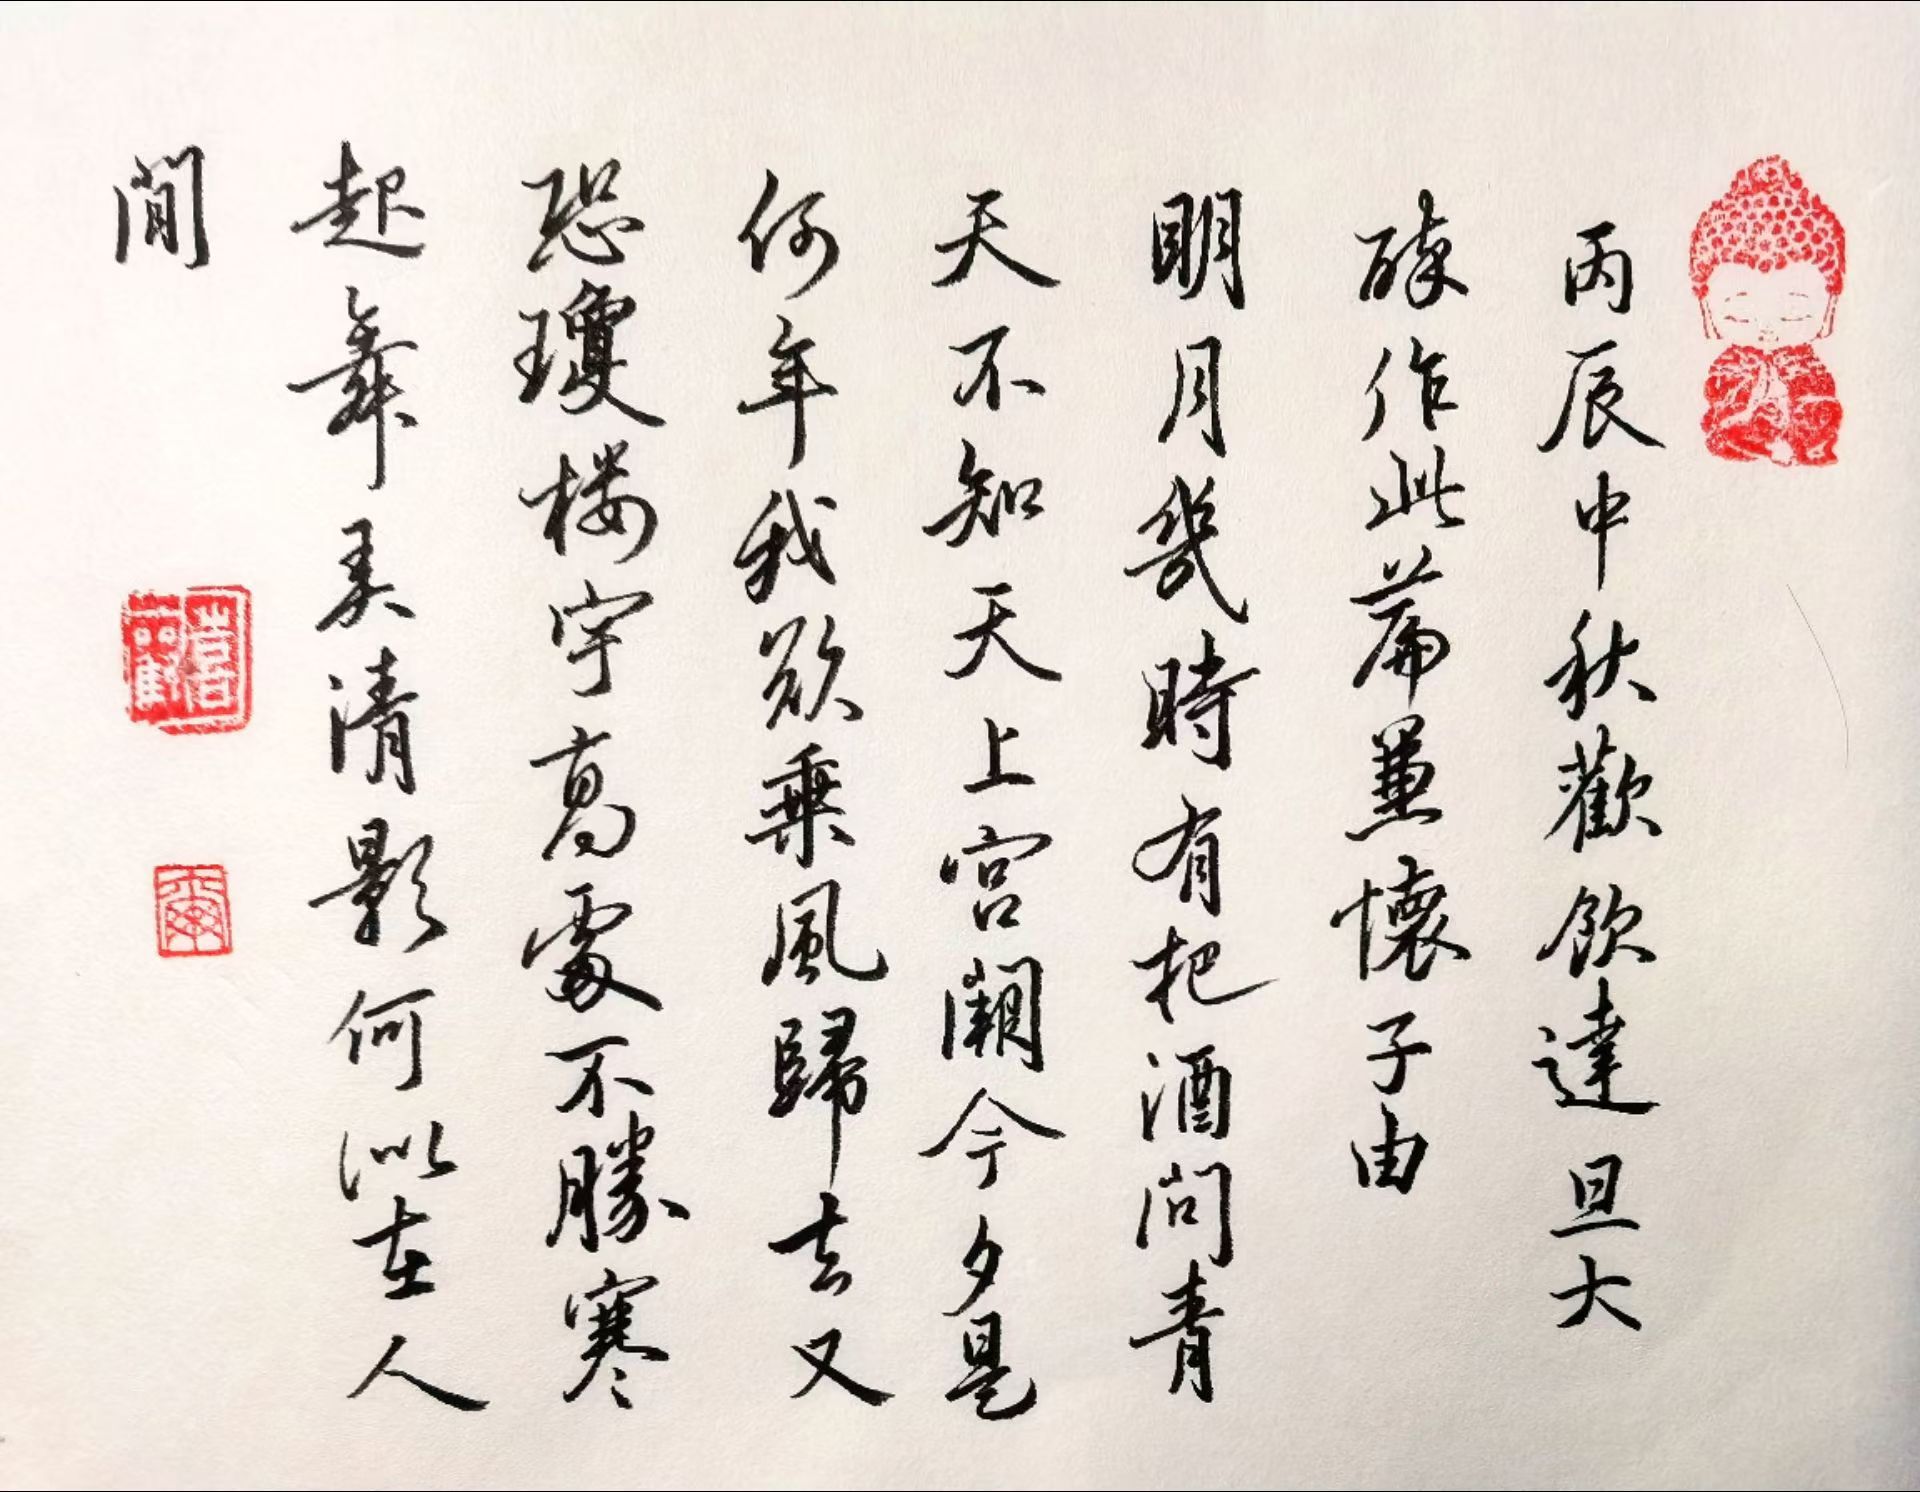 丙辰中秋歡飲達旦大
醉作此篇兼懷子由
明月幾時有把酒問青
天不知天上宮闕今夕是
何年我欲乘風歸去又
恐瓊楼宇高處不勝寒
起舞弄清影何似在人
間